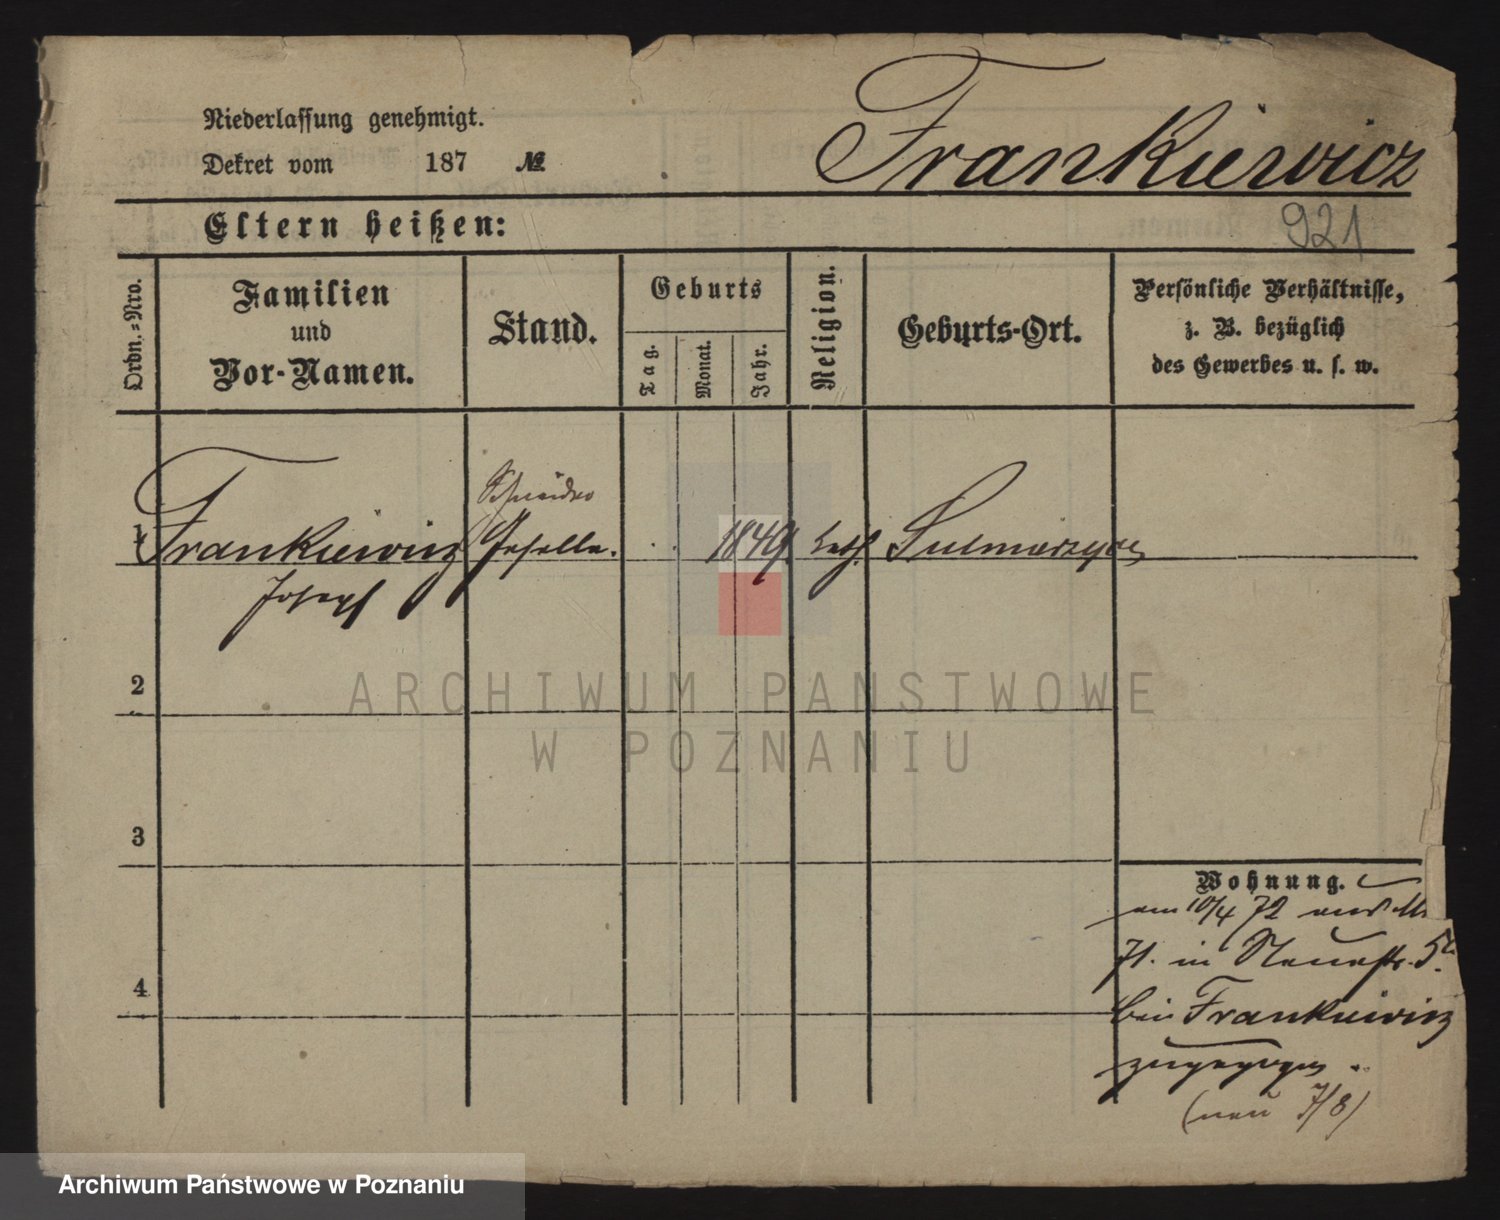 Niederlassung genehmigt.
Dekret vom 187 №
Frankiewicz
921
Eltern heißen:
Ordn.=Nro.
Familien
und
Vor-Namen.
Stand.
Geburts
Tag.
Monat.
Jahr.
Religion.
Geburts-Ort.
Persönliche Verhältnisse,
z. B. bezüglich
des Gewerbes u. s. w.
Schneider
1 Frankiewicz Geselle. 1849 kath. Sulmierzyce
Joseph
2
3
4
Wohnung.
am 10/4 72
71. in Neuestr. 5
bei Frankiewicz
zugezogen.
(neu 7/8)
ARCHIWUM PANSTWOWE
W POZNANIU
Archiwum Państwowe w Poznaniu